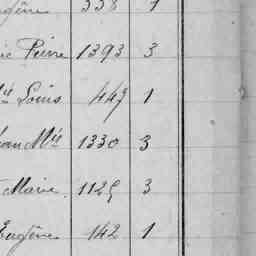 gène 338 1
ic Pierre 1393 3
Mie Louis 447 1
ean Mie 1330 3
Marie 1125 3
Eugène 142 1